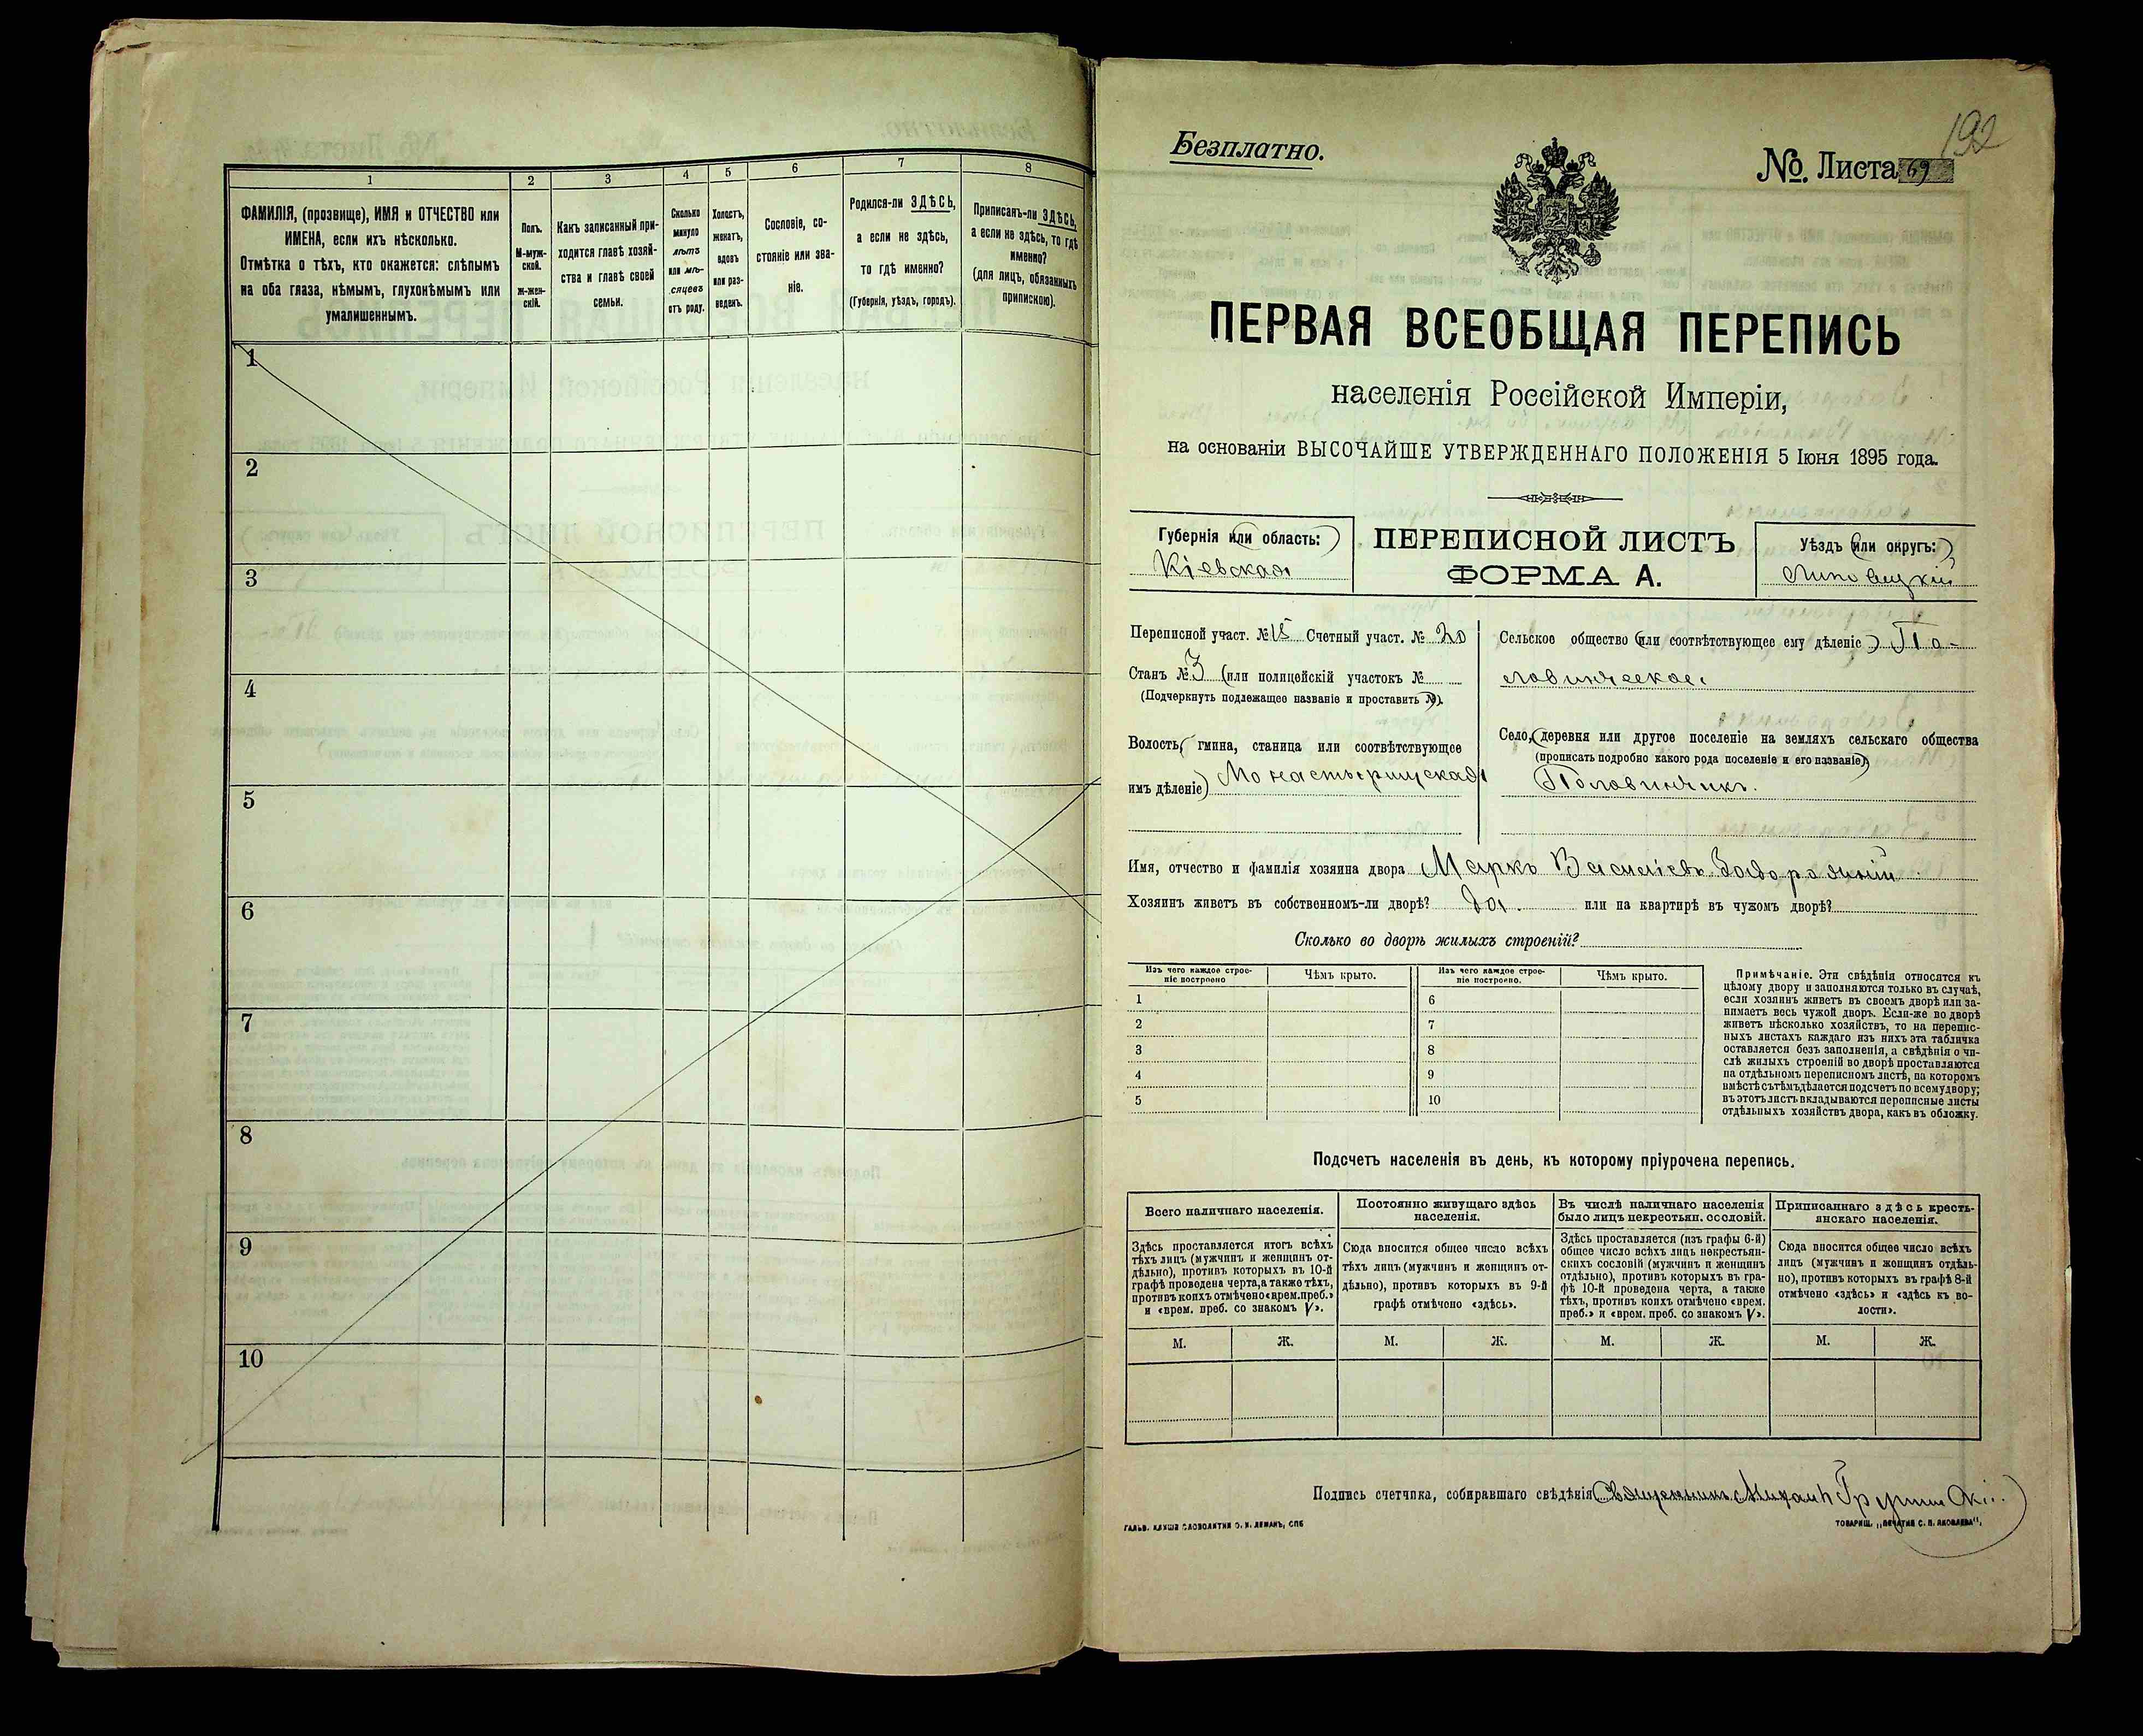 1
2
3
4
5
6
7
8
ФАМИЛІЯ, (прозвище), ИМЯ и ОТЧЕСТВО или
ИМЕНА, если ихъ нѣсколько.
Отмѣтка о тѣхъ, кто окажется: слѣпымъ
на оба глаза, нѣмымъ, глухонѣмымъ или
умалишеннымъ.
Полъ.
М-муж-
ской.
ж-жен-
скій.
Какъ записанный при-
ходится главѣ хозяй-
ства и главѣ своей
семьи.
Сколько
минуло
лѣтъ
или мѣ-
сяцевъ
отъ роду.
Холостъ,
женатъ,
вдовъ
или раз-
веденъ.
Сословіе, со-
стояніе или зва-
ніе.
Родился-ли ЗДѢСЬ,
а если не здѣсь,
то гдѣ именно?
(Губернія, уѣздъ, городъ).
Приписанъ-ли ЗДѢСЬ,
а если не здѣсь, то гдѣ
именно?
(для лицъ, обязанныхъ
припискою).
1
2
3
4
5
6
7
8
9
10
192
Безплатно.
№. Листа 69
ПЕРВАЯ ВСЕОБЩАЯ ПЕРЕПИСЬ
населенія Россійской Имперіи,
на основаніи ВЫСОЧАЙШЕ УТВЕРЖДЕННАГО ПОЛОЖЕНІЯ 5 Іюня 1895 года.
Губернія или область:
Кіевская
ПЕРЕПИСНОЙ ЛИСТЪ
ФОРМА А.
Уѣздъ (или округъ:)
Липовецкій
Переписной участ. № 15 Счетный участ. № 20
Станъ № 3 (или полицейскій участокъ №
(Подчеркнуть подлежащее названіе и проставить №).
Волость, (гмина, станица или соотвѣтствующее
имъ дѣленіе) Монастырищская
Сельское общество (или соотвѣтствующее ему дѣленіе) По-
ловинческое
Село, (деревня или другое поселеніе на земляхъ сельскаго общества
(прописать подробно какого рода поселеніе и его названіе)
Половинчикъ.
Имя, отчество и фамилія хозяина двора Маркъ Василіевъ
Хозяинъ живетъ въ собственномъ-ли дворѣ? да. или на квартирѣ въ чужомъ дворѣ?
Сколько во дворѣ жилыхъ строеній?
Изъ чего каждое строе-
ніе построено
Чѣмъ крыто.
Изъ чего каждое строе-
ніе построено.
Чѣмъ крыто.
1
2
3
4
5
6
7
8
9
10
Примѣчаніе. Эти свѣдѣнія относятся къ
цѣлому двору и заполняются только въ случаѣ,
если хозяинъ живетъ въ своемъ дворѣ или за-
нимаетъ весь чужой дворъ. Если-же во дворѣ
живетъ нѣсколько хозяйствъ, то на перепис-
ныхъ листахъ каждаго изъ нихъ эта табличка
оставляется безъ заполненія, а свѣдѣнія о чи-
слѣ жилыхъ строеній во дворѣ проставляются
на отдѣльномъ переписномъ листѣ, на которомъ
вмѣстѣ съ тѣмъ дѣлается подсчетъ по всему двору;
въ этотъ листъ вкладываются переписные листы
отдѣльныхъ хозяйствъ двора, какъ въ обложку.
Подсчетъ населенія въ день, къ которому пріурочена перепись.
Всего наличнаго населенія.
Постоянно живущаго здѣсь
населенія.
Въ числѣ наличнаго населенія
было лицъ некрестьян. сословій.
Приписаннаго здѣсь кресть-
янскаго населенія.
Здѣсь проставляется итогъ всѣхъ
тѣхъ лицъ (мужчинъ и женщинъ от-
дѣльно), противъ которыхъ въ 10-й
графѣ проведена черта, а также тѣхъ,
противъ коихъ отмѣчено «врем. преб.»
и «врем. преб. со знакомъ V».
Сюда вносится общее число всѣхъ
тѣхъ лицъ (мужчинъ и женщинъ от-
дѣльно), противъ которыхъ въ 9-й
графѣ отмѣчено «здѣсь».
Здѣсь проставляется (изъ графы 6-й)
общее число всѣхъ лицъ некрестьян-
скихъ сословій (мужчинъ и женщинъ
отдѣльно), противъ которыхъ въ гра-
фѣ 10-й проведена черта, а также
тѣхъ, противъ коихъ отмѣчено «врем.
преб.» и «врем. преб. со знакомъ V».
Сюда вносится общее число всѣхъ
лицъ (мужчинъ и женщинъ отдѣль-
но), противъ которыхъ въ графѣ 8-й
отмѣчено «здѣсь» и «здѣсь къ во-
лости».
М.
Ж.
М.
Ж.
М.
Ж.
М.
Ж.
Подпись счетчика, собиравшаго свѣдѣнія Священникъ Михаилъ
ГАЛЬВ. КЛИШЕ СЛОВОЛИТНИ О. И. ЛЕМАНЪ, СПБ
ТОВАРИЩ. „ПЕЧАТНЯ С. П. ЯКОВЛЕВА“.